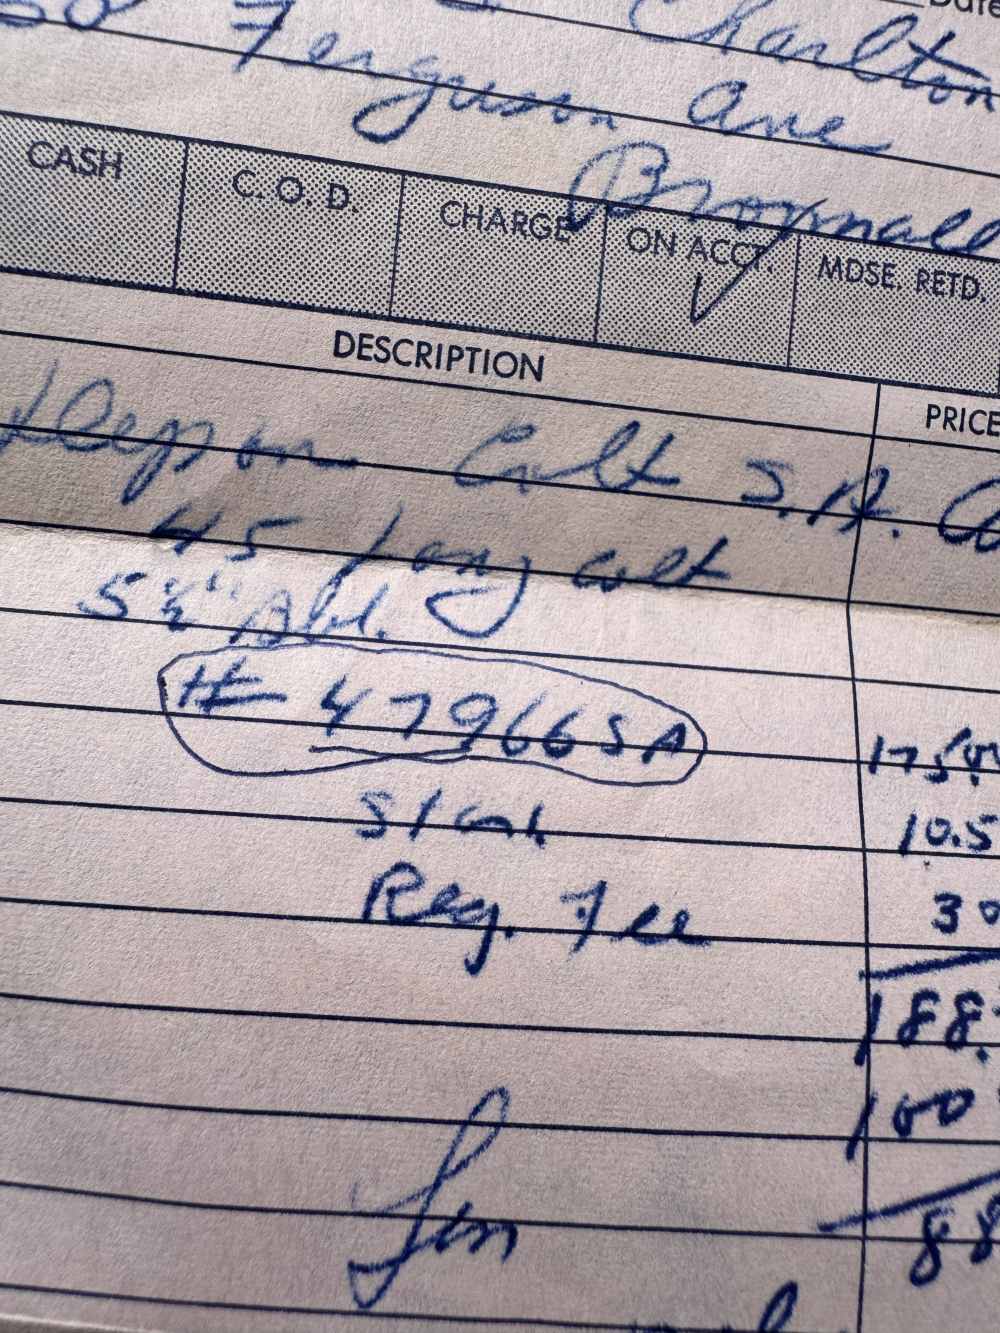 Date
Charlton
Ferguson Ave
Broomall
CASH C. O. D. CHARGE ON ACCT. MDSE. RETD.
DESCRIPTION PRICE
Colt S.A.
45 Long colt
5½" Bbl.
# 47966SA 175.00
10.5
Reg. Fee 30
188.
100
88